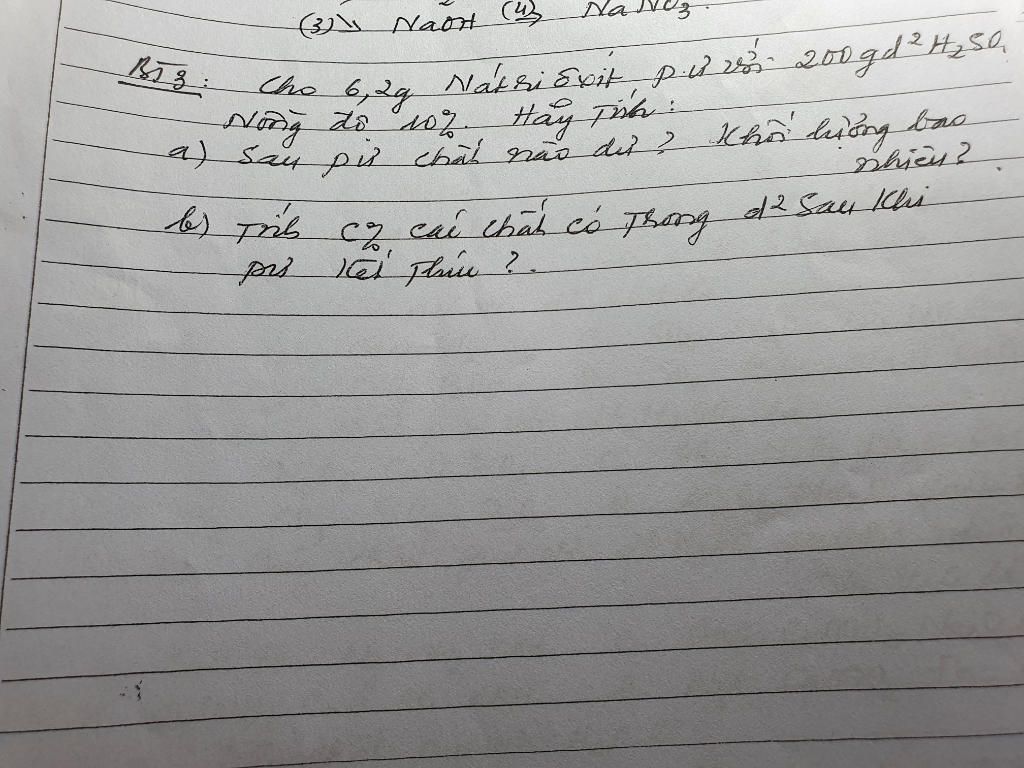 (3)↘ NaOH (4)→ NaNO₃.
BT3: Cho 6,2g Nátri ôxit pứ với 200g d² H₂SO₄
Nồng độ 10%. Hãy Tính:
a) Sau pứ chất nào dư? Khối lượng bao
nhiêu?
b) Tính C% các chất có Trong d² Sau Khi
pứ Kết Thúc?.